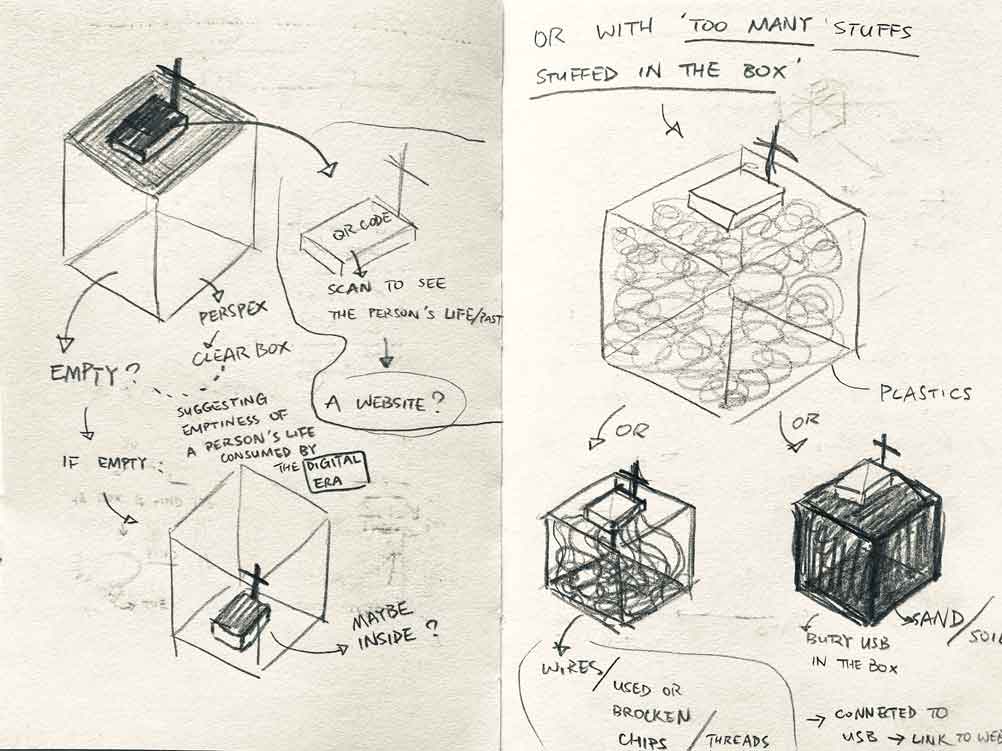 QR CODE
SCAN TO SEE
THE PERSON'S LIFE/PAST
A WEBSITE?
PERSPEX
CLEAR BOX
EMPTY?
SUGGESTING
EMPTINESS OF
A PERSON'S LIFE
CONSUMED BY
THE DIGITAL
ERA
IF EMPTY
MAYBE
INSIDE?
OR WITH 'TOO MANY STUFFS
STUFFED IN THE BOX'
PLASTICS
OR
OR
WIRES/
USED OR
BROCKEN
CHIPS/THREADS
SAND/
SOIL
BURY USB
IN THE BOX
→ CONNECTED TO
USB → LINK TO